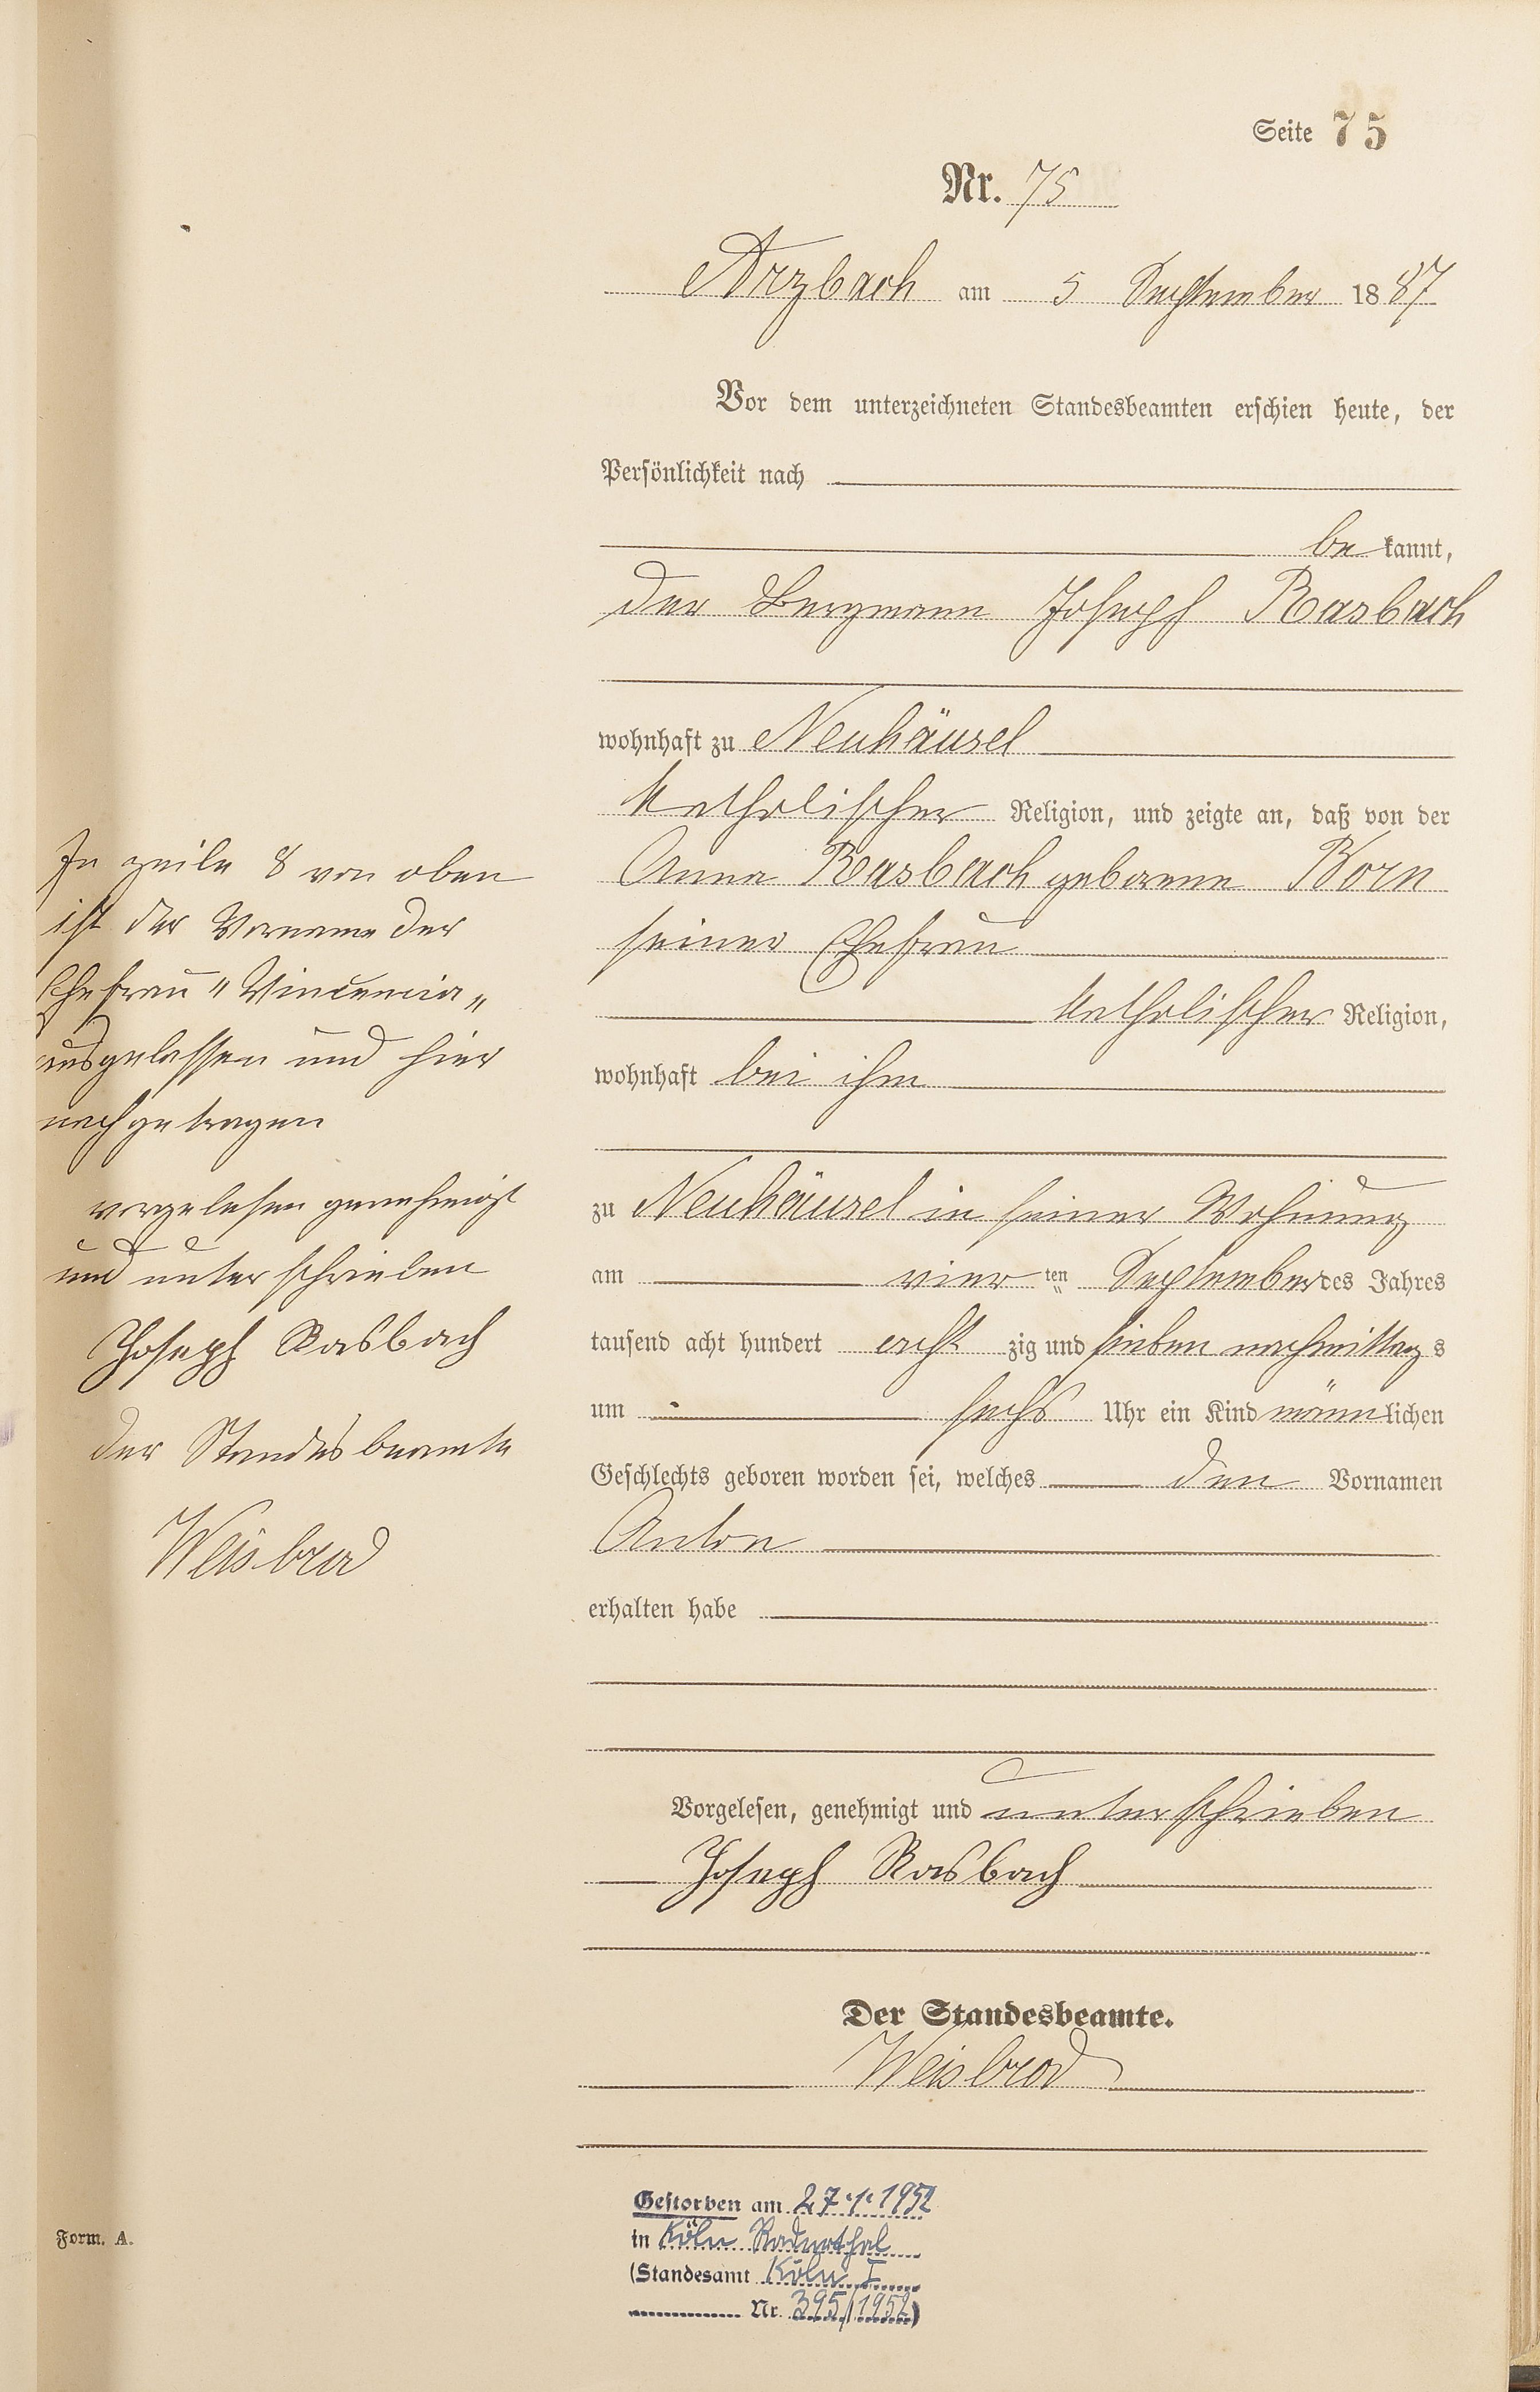 Seite 75
Nr. 75
Arzbach am 5 September 1887
Vor dem unterzeichneten Standesbeamten erschien heute, der
Persönlichkeit nach
be kannt,
der Bergmann Joseph Rasbach
wohnhaft zu Neuhäusel
katholischer Religion, und zeigte an, daß von der
Anna Rasbach geborene Born
seiner Ehefrau
katholischer Religion,
wohnhaft bei ihm
zu Neuhäusel in seiner Wohnung
am vier ten September des Jahres
tausend acht hundert acht zig und sieben nachmittag s
um sechs Uhr ein Kind männ lichen
Geschlechts geboren worden sei, welches den Vornamen
Anton
erhalten habe
Vorgelesen, genehmigt und unterschrieben
Joseph Rasbach
Der Standesbeamte.
Weisbrod
In zeile 8 von oben
ist der Vorname der
Ehefrau "Vincencia"
ausgelassen und hier
nachgetragen
vorgelesen genehmigt
und unterschrieben
Joseph Rasbach
der Standesbeamte
Weisbrod
Gestorben am 27.1.1952
in Köln Raderthal
(Standesamt Köln I
Nr. 395/1952)
Form. A.